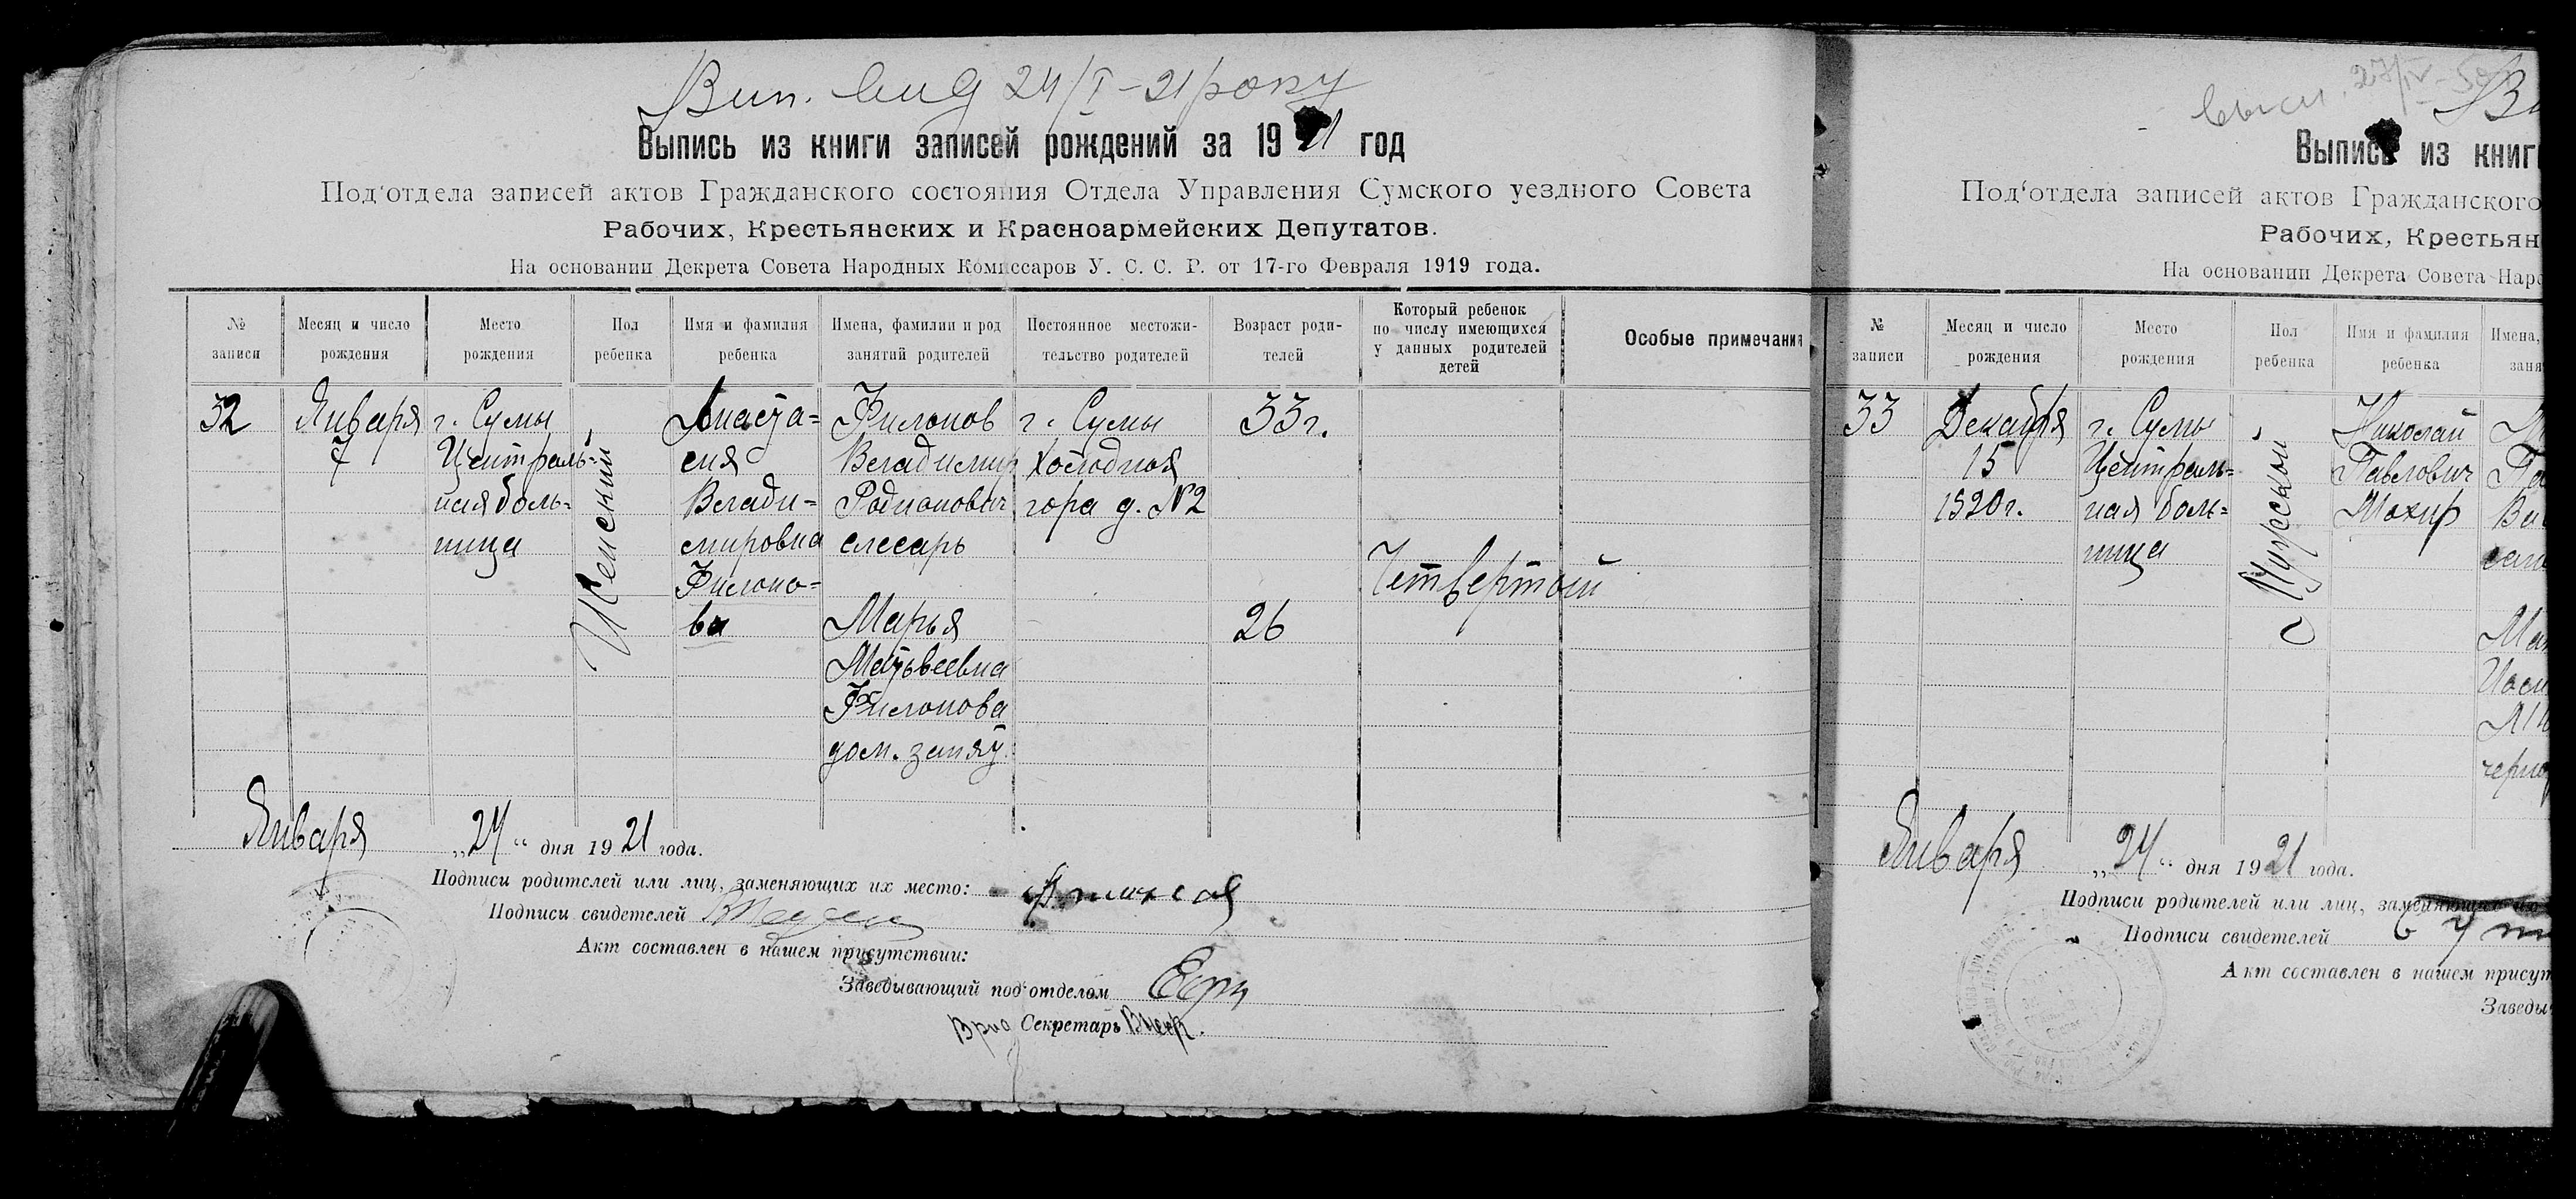 Вип. вид 24/I-21 року
Выпись из книги записей рождений за 1921 год
Под‘отдела записей актов Гражданского состояния Отдела Управления Сумского уездного Совета
Рабочих, Крестьянских и Красноармейских Депутатов.
На основании Декрета Совета Народных Комиссаров У. С. С. Р. от 17-го Февраля 1919 года.
№ записи
Месяц и число рождения
Место рождения
Пол ребенка
Имя и фамилия ребенка
Имена, фамилии и род занятий родителей
Постоянное местожи-
тельство родителей
Возраст роди-
телей
Который ребенок
по числу имеющихся
у данных родителей
детей
Особые примечания
32
Января
7
г. Сумы
Централь-
ная боль-
ница
Женский
Анаста-
сия
Влади-
мировна
Филоно-
ва
Филонов
Владимир
Родионович
слесарь
Марья
Матвеевна
Филонова
дом. занят.
г. Сумы
Холодная
гора д. №2
33 г.
26
Четвертый
Января „24“ дня 1921 года.
Подписи родителей или лиц, заменяющих их место:
Подписи свидетелей
Акт составлен в нашем присутствии:
Заведывающий под‘отделом
Врид Секретарь
27/IV-50
Выпись из книги
Под‘отдела записей актов Гражданского
Рабочих, Крестьян
На основании Декрета Совета Наро
№ записи
Месяц и число рождения
Место рождения
Пол ребенка
Имя и фамилия ребенка
Имена,
заня
33
Декабря
15
1920 г.
г. Сумы
Централь-
ная боль-
ница
Мужской
Николай
Павлович
Мохир
Января „24“ дня 1921 года.
Подписи родителей или лиц, заменяющих их
Подписи свидетелей
Акт составлен в нашем присут
Заведы